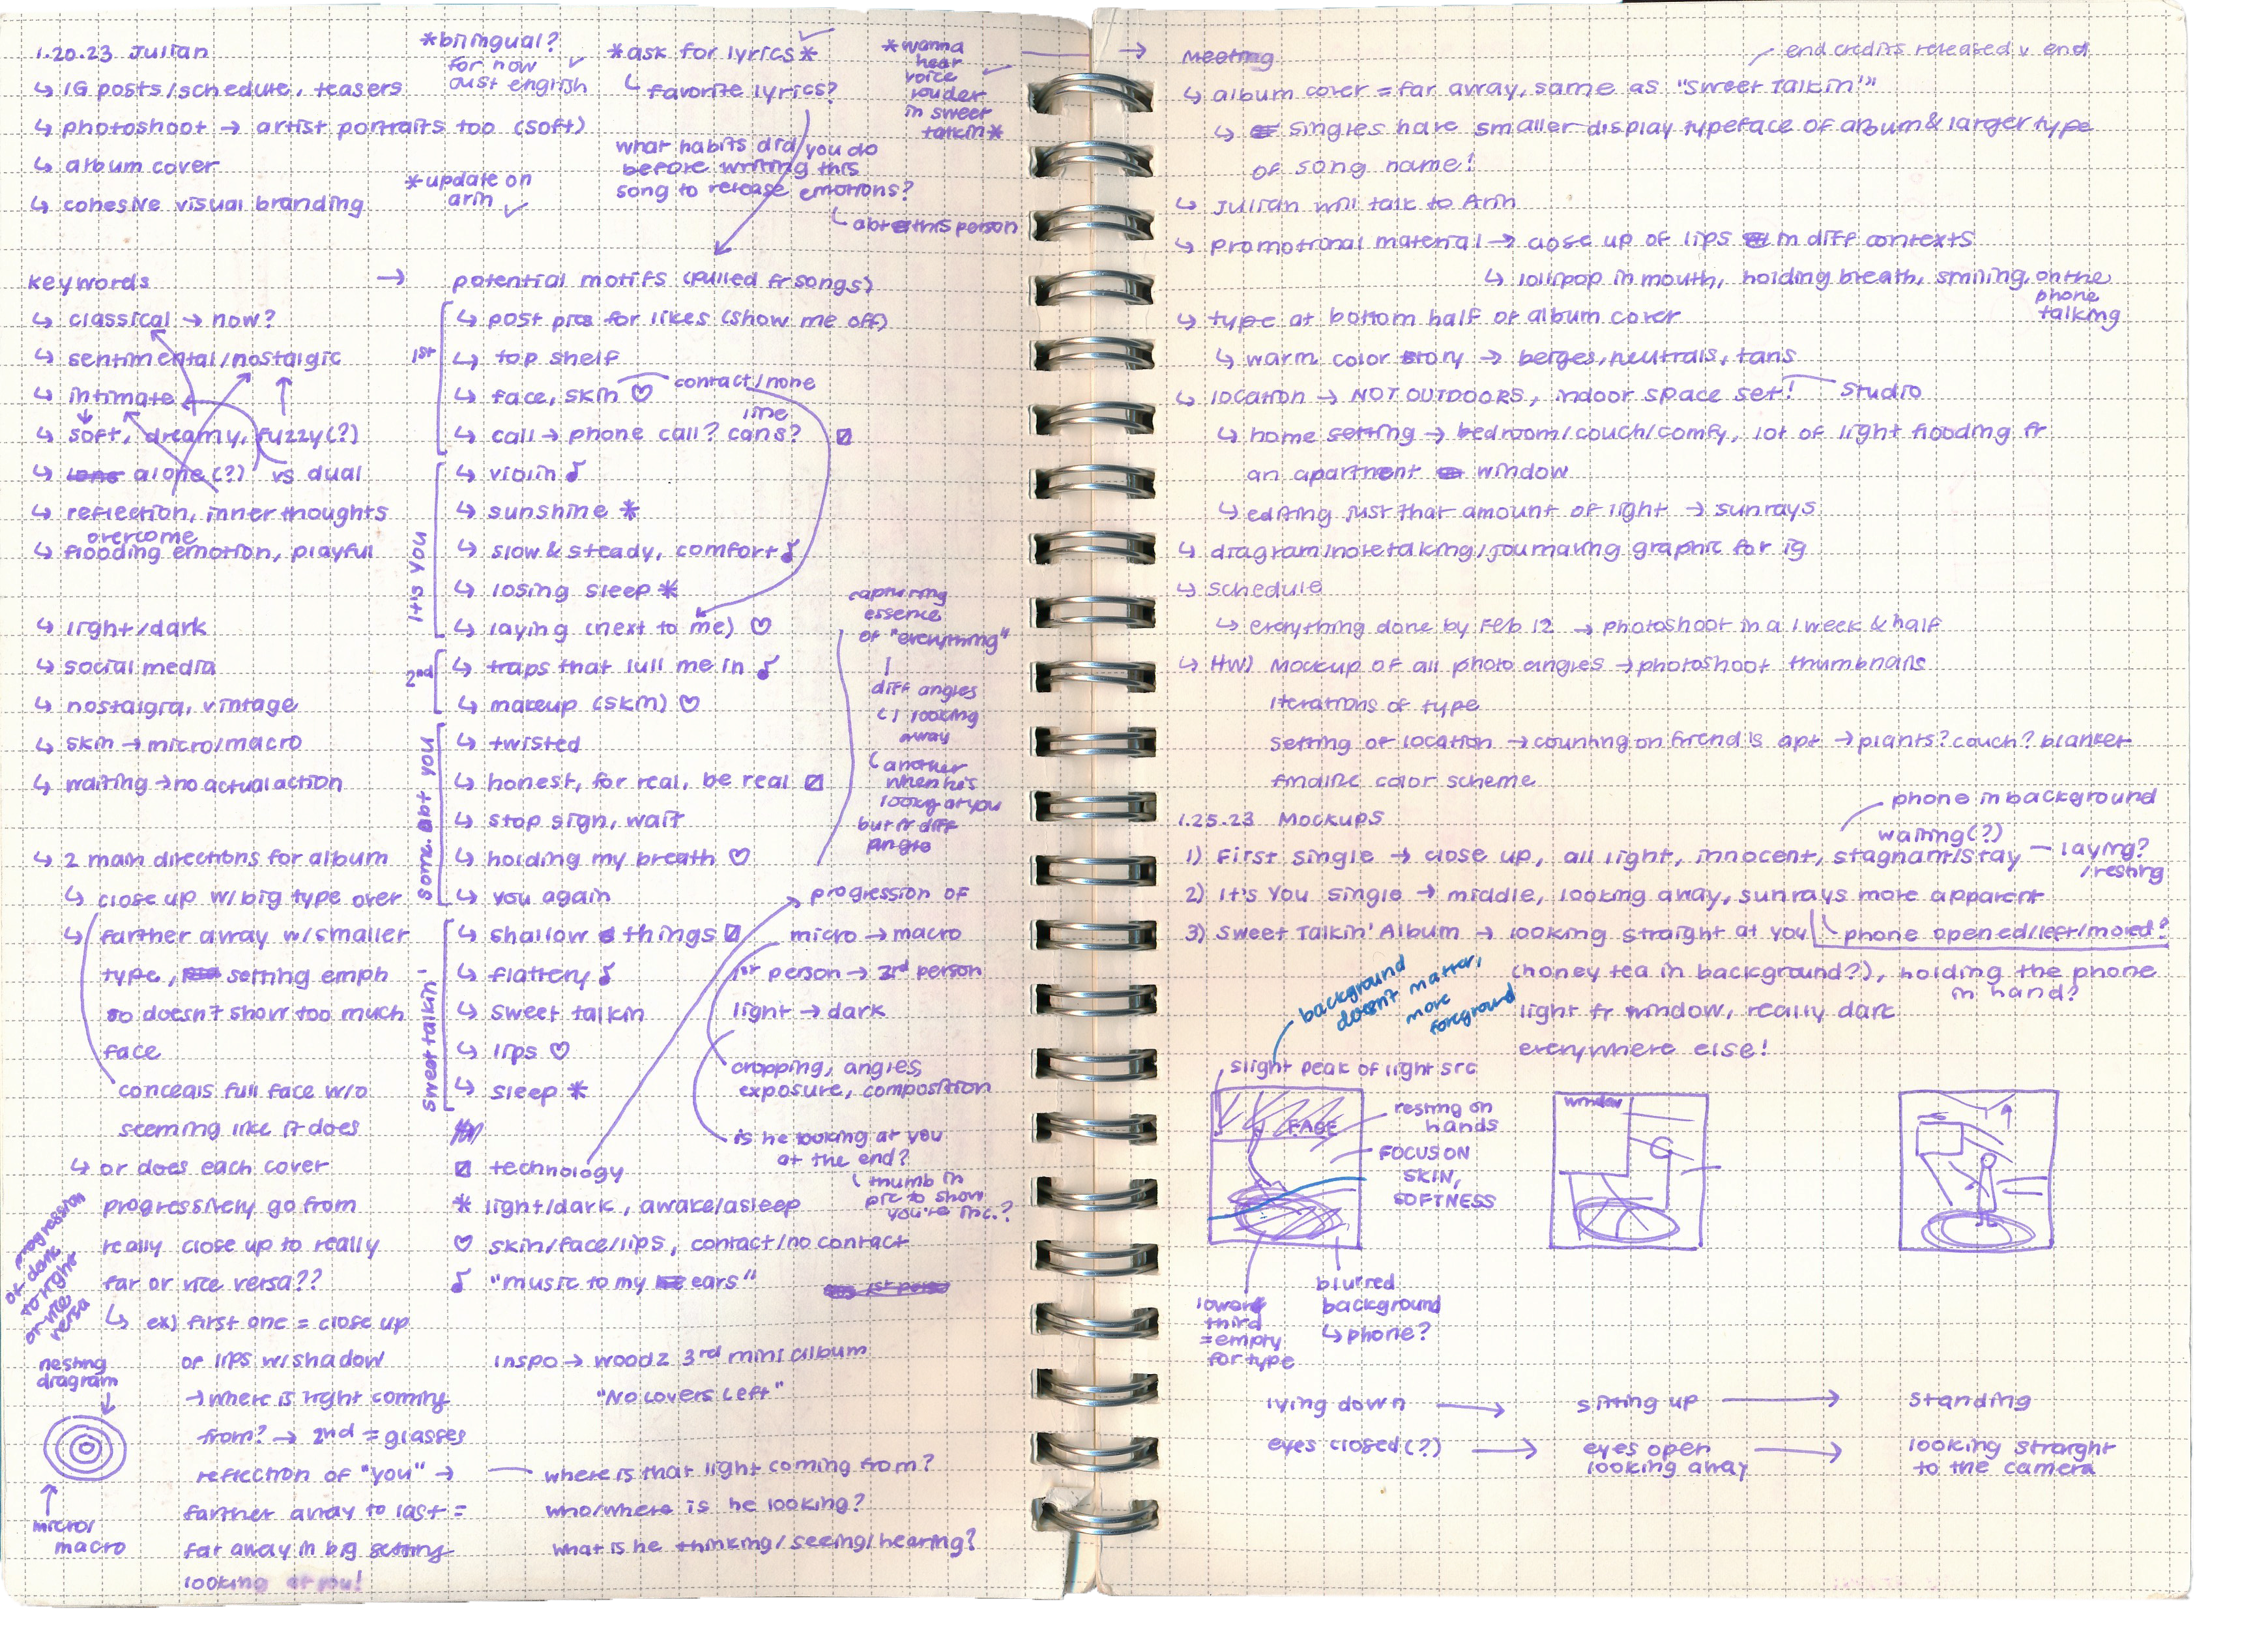 1.20.23 Julian
↳ IG posts/schedule, teasers
↳ photoshoot → artist portraits too (soft)
↳ album cover
↳ cohesive visual branding
*bilingual?
for now
just english
*update on
arin ✓
*ask for lyrics*
↳ favorite lyrics?
what habits did you do
before writing this
song to release emotions?
↳ abt this person
*wanna
hear
voice
louder
in sweet
talkin*
keywords →
↳ classical → now?
↳ sentimental/nostalgic
↳ intimate
↳ soft, dreamy, fuzzy(?)
↳ alone(?) vs dual
↳ reflection, inner thoughts
overcome
↳ flooding emotion, playful
↳ light/dark
↳ social media
↳ nostalgia, vintage
↳ skin → micro/macro
↳ waiting → no actual action
↳ 2 main directions for album
↳ close up w/ big type over
↳ farther away w/ smaller
type, setting emph
so doesn't show too much
face
conceals full face w/o
seeming like it does
↳ or does each cover
progressively go from
really close up to really
far or vice versa??
progression
of dark
to light
or vice
versa
↳ ex) first one = close up
of lips w/ shadow
→ where is light coming
from? → 2nd = glasses
reflection of "you" →
farther away to last =
far away in big setting
looking at you!
nesting
diagram
micro/
macro
potential motifs (pulled fr songs)
1st
↳ post pics for likes (show me off)
↳ top shelf
↳ face, skin ♡ contact/none
line
↳ call → phone call? cans?
it's you
↳ violin ♪
↳ sunshine *
↳ slow & steady, comfort ♪
↳ losing sleep *
↳ laying (next to me) ♡
2nd
↳ traps that lull me in ♪
↳ makeup (skin) ♡
song abt you
↳ twisted
↳ honest, for real, be real ☐
↳ stop sign, wait
↳ holding my breath ♡
↳ you again
sweet talkin'
↳ shallow things ☐
↳ flattery ♪
↳ sweet talkin
↳ lips ♡
↳ sleep *
☐ technology
* light/dark, awake/asleep
♡ skin/face/lips, contact/no contact
♪ "music to my ears"
inspo → woodz 3rd mini album
"No Lovers Left"
where is that light coming from?
who/where is he looking?
what is he thinking/seeing/hearing?
capturing
essence
of "everything"
diff angles
↳ 1 looking
away
↳ another
when he's
looking at you
but fr diff
angle
progression of
micro → macro
1st person → 3rd person
light → dark
cropping, angles
exposure, composition
is he looking at you
at the end?
↳ thumb in
pic to show
you're mc.?
→ Meeting
end credits released @ end
↳ album cover = far away, same as "Sweet Talkin'"
↳ singles have smaller display typeface of album & larger type
of song name!
↳ Julian will talk to Arin
↳ promotional material → close up of lips in diff contexts
↳ lollipop in mouth, holding breath, smiling, on the
phone
talking
↳ type at bottom half of album cover
↳ warm color story → beiges, neutrals, tans
↳ location → NOT OUTDOORS, indoor space set! Studio
↳ home setting → bedroom/couch/comfy, lot of light flooding fr
an apartment window
↳ editing just that amount of light → sunrays
↳ diagram/notetaking/journaling graphic for ig
↳ schedule
↳ everything done by Feb 12 → photoshoot in a 1 week & half
↳ HW) Mockup of all photo angles → photoshoot thumbnails
iterations of type
setting of location → counting on friend's apt → plants? couch? blanket
finalize color scheme
1.25.23 Mockups
phone in background
waiting(?)
1) First single → close up, all light, innocent, stagnant/stay — laying?
/resting
2) It's You single → middle, looking away, sunrays more apparent
phone opened/left/moved?
3) Sweet Talkin' Album → looking straight at you
(honey tea in background?), holding the phone
in hand?
light fr window, really dark
everywhere else!
background
doesn't matter,
more
foreground
slight peak of light src
FACE
resting on
hands
FOCUS ON
SKIN,
SOFTNESS
window
lower
third
= empty
for type
blurred
background
↳ phone?
lying down → sitting up → standing
eyes closed(?) → eyes open
looking away → looking straight
to the camera